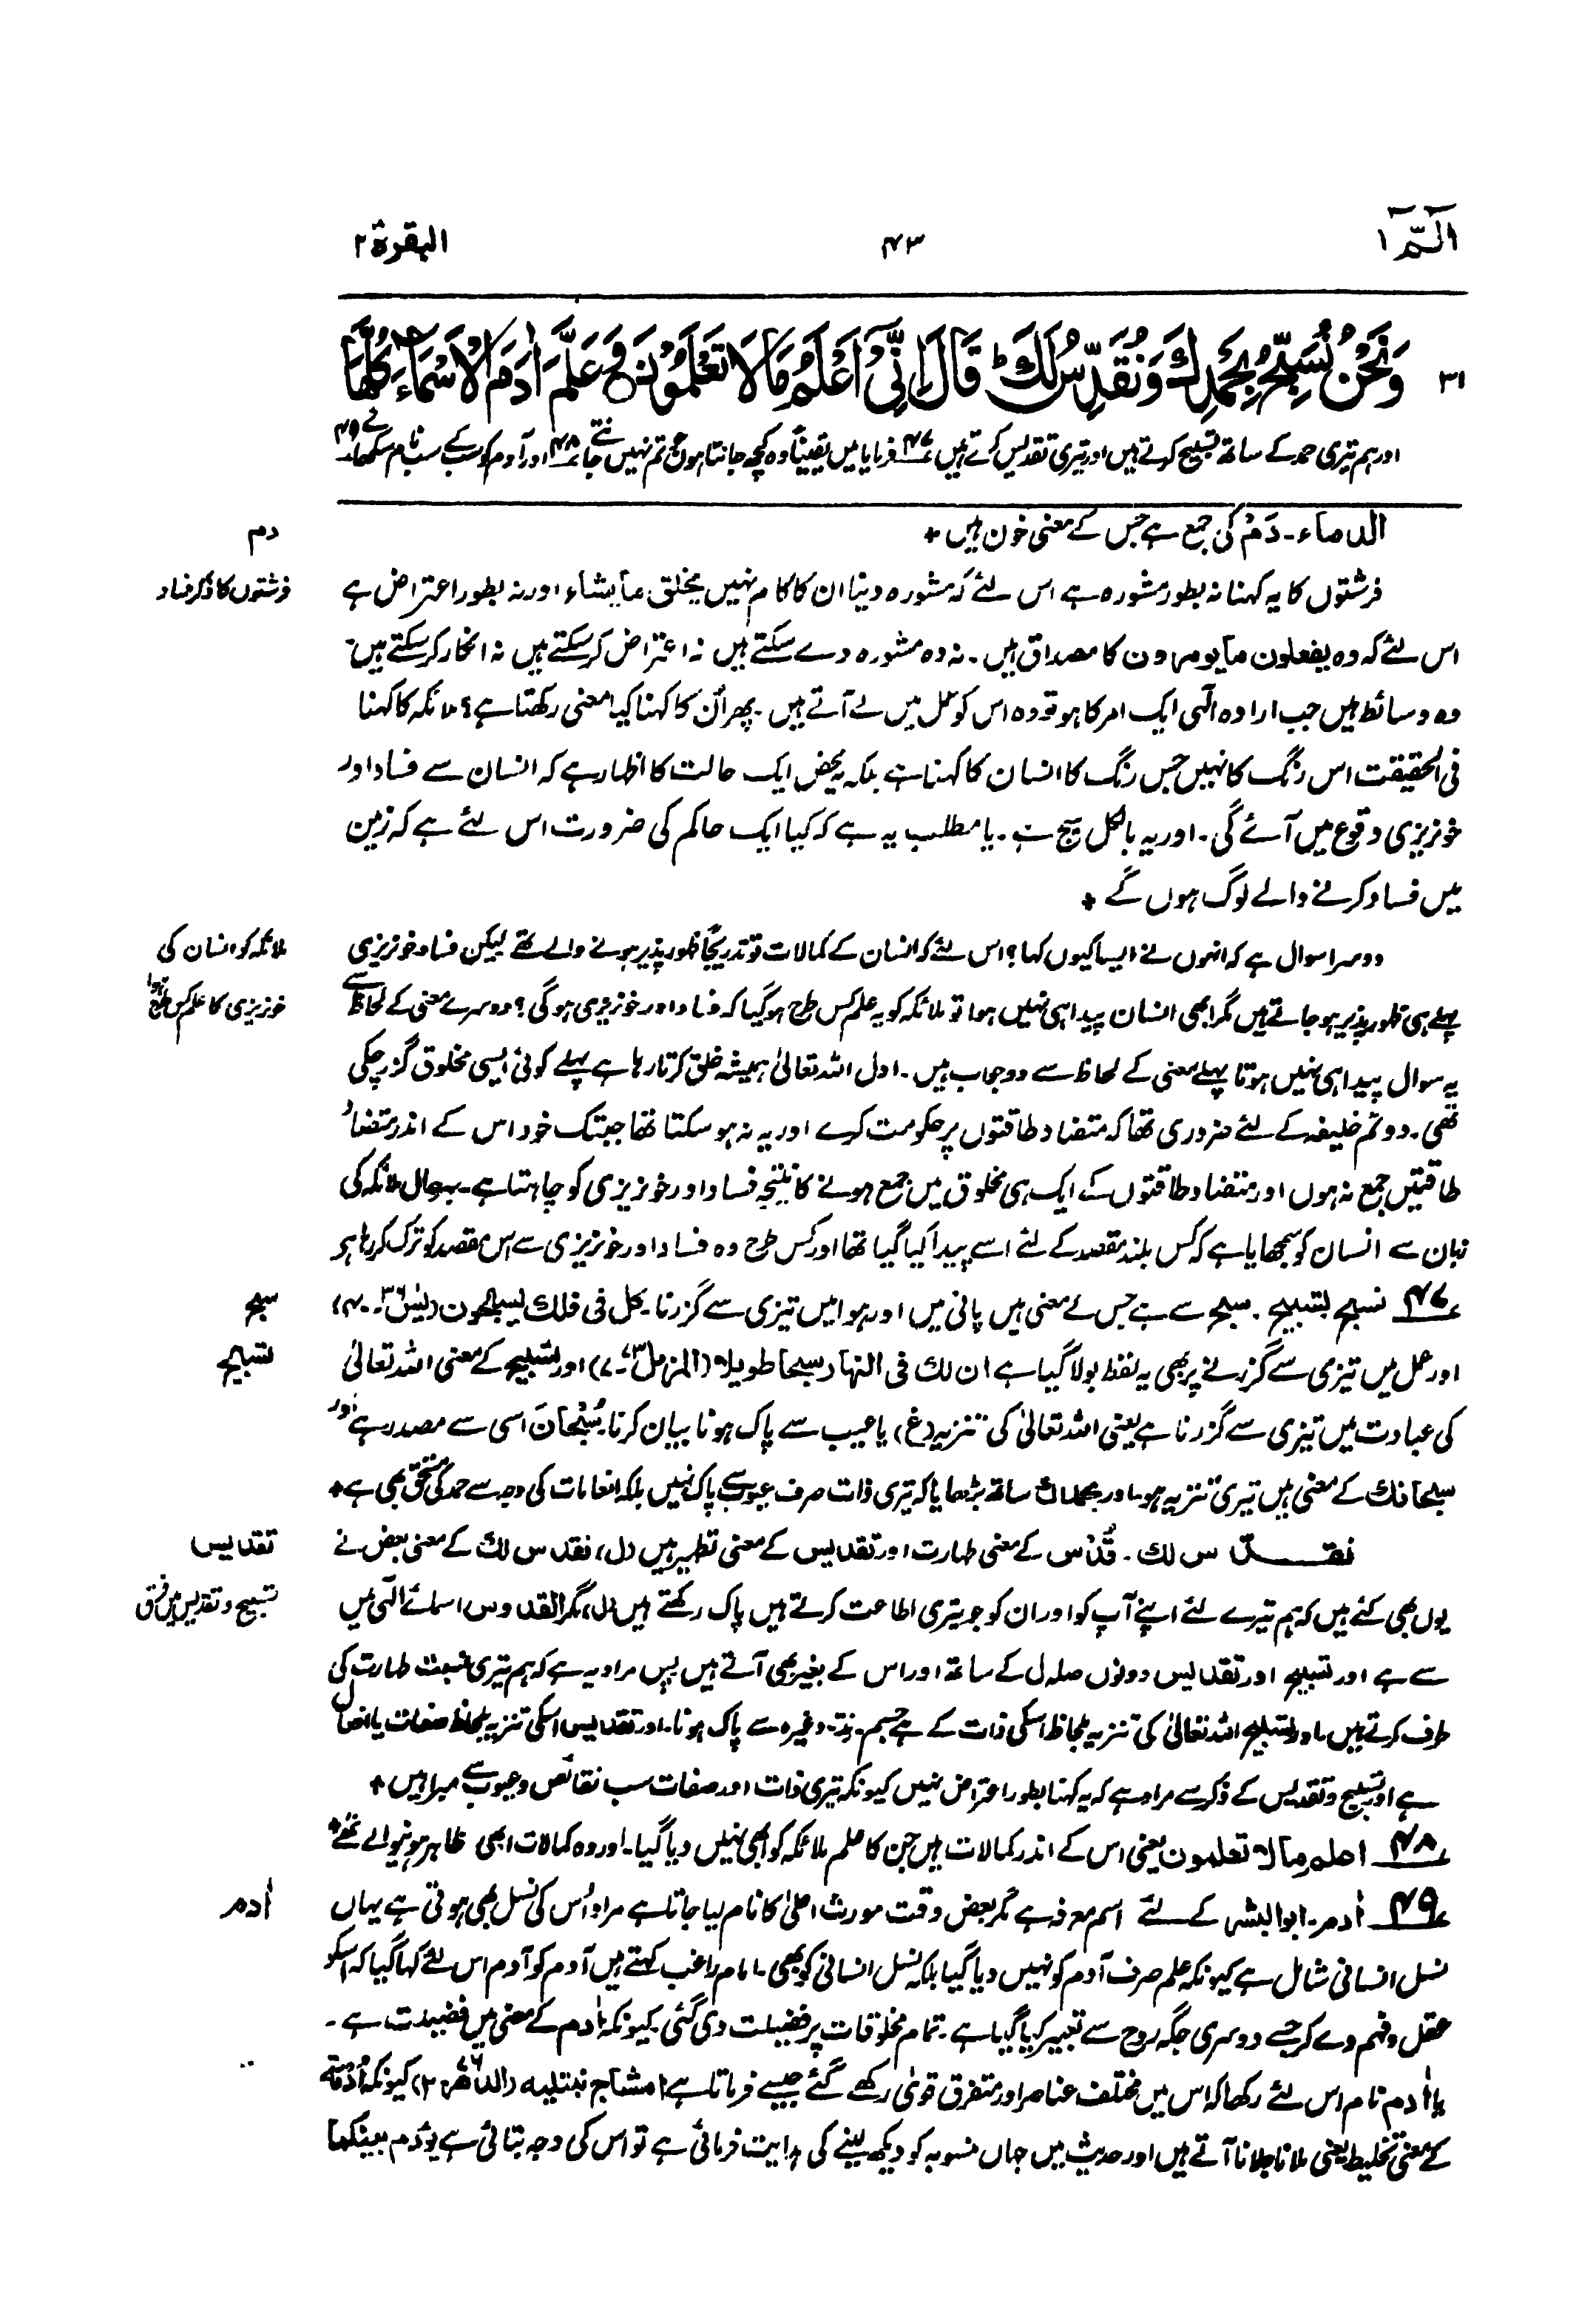 الٓمّٓ ۱
۴۳
البقرة ۲
۳۱ وَنَحْنُ نُسَبِّحُ بِحَمْدِكَ وَنُقَدِّسُ لَكَ ؕ قَالَ اِنِّىْٓ اَعْلَمُ مَا لَا تَعْلَمُوْنَ وَعَلَّمَ اٰدَمَ الْاَسْمَآءَ كُلَّهَا
اور ہم تیری حمد کے ساتھ تسبیح کرتے ہیں اور تیری تقدیس کرتے ہیں ۴۷ فرمایا میں یقیناً وہ کچھ جانتا ہوں جو تم نہیں جانتے ۴۸ اور آدم کو سب کے سب نام سکھائے ۴۹
الدماء۔ دَمٌ کی جمع ہے جس کے معنی خون ہیں +
دم
فرشتوں کا یہ کہنا نہ بطور مشورہ ہے اس لئے کہ مشورہ دینا ان کا کام نہیں یخلق ما یشاء اور نہ بطور اعتراض ہے
فرشتوں کا ذکر فساد
اس لئے کہ وہ یفعلون ما یومرون کا مصداق ہیں۔ نہ وہ مشورہ دے سکتے ہیں نہ اعتراض کر سکتے ہیں نہ انکار کر سکتے ہیں۔
وہ وسائط ہیں جب ارادہ الٰہی ایک امر کا ہو تو وہ اس کو عمل میں لے آتے ہیں۔ پھر اُن کا کہنا کیا معنی رکھتا ہے؟ ملائکہ کا کہنا
فی الحقیقت اس رنگ کا نہیں جس رنگ کا انسان کا کہنا ہے بلکہ یہ محض ایک حالت کا اظہار ہے کہ انسان سے فساد اور
خونریزی وقوع میں آئے گی۔ اور یہ بالکل سچ ہے۔ یا مطلب یہ ہے کہ کیا ایک حاکم کی ضرورت اس لئے ہے کہ زمین
میں فساد کرنے والے لوگ ہوں گے +
دوسرا سوال ہے کہ انہوں نے ایسا کیوں کہا؟ اس لئے کہ انسان کے کمالات تو تدریجاً ظہور پذیر ہونے والے تھے لیکن فساد خونریزی
ملائکہ کو انسان کی
پہلے ہی ظہور پذیر ہو جاتے ہیں مگر ابھی انسان پیدا ہی نہیں ہوا تو ملائکہ کو یہ علم کس طرح ہو گیا کہ فساد اور خونریزی ہو گی؟ دوسرے معنی کے لحاظ سے
خونریزی کا علم کس طرح ہوا
یہ سوال پیدا ہی نہیں ہوتا پہلے معنی کے لحاظ سے دو جواب ہیں۔ اول اللہ تعالیٰ ہمیشہ خلق کرتا رہا ہے پہلے کوئی ایسی مخلوق گزر چکی
تھی۔ دوئم خلیفہ کے لئے ضروری تھا کہ متضاد طاقتوں پر حکومت کرے اور یہ نہ ہو سکتا تھا جبتک خود اس کے اندر متضاد
طاقتیں جمع نہ ہوں اور متضاد طاقتوں کے ایک ہی مخلوق میں جمع ہونے کا نتیجہ فساد اور خونریزی کو چاہتا ہے۔ بہرحال ملائکہ کی
زبان سے انسان کو سمجھایا ہے کہ کس بلند مقصد کے لئے اسے پیدا کیا گیا تھا اور کس طرح وہ فساد اور خونریزی سے اس مقصد کو ترک کر رہا ہے
۴۷ نسبح بتسبیح۔ سبح سے ہے جس کے معنی ہیں پانی میں اور ہوا میں تیزی سے گزرنا۔ کل فی فلك یسبحون (یٰسٓ ۳۶۔ ۴۰)
سبح
اور عمل میں تیزی سے گزرنے پر بھی یہ لفظ بولا گیا ہے ان لك فی النهار سبحا طویلا (المزمل ۷۳۔ ۷) اور تسبیح کے معنی اللہ تعالیٰ
تسبیح
کی عبادت میں تیزی سے گزرنا ہے یعنی اللہ تعالیٰ کی تنزیہ (غ) یا عیب سے پاک ہونا بیان کرنا۔ سُبْحَانَ اسی سے مصدر ہے اور
سبحانك کے معنی ہیں تیری تنزیہ ہو۔ اور بحمدك ساتھ بڑھایا کہ تیری ذات صرف عیوب سے پاک نہیں بلکہ انعامات کی وجہ سے حمد کی مستحق بھی ہے +
نقدس لك۔ قُدُس کے معنی طہارت اور تقدیس کے معنی تطہیر ہیں (ل)، نقدس لك کے معنی بعض نے
تقدیس
یوں بھی کئے ہیں کہ ہم تیرے لئے اپنے آپ کو اور ان کو جو تیری اطاعت کرتے ہیں پاک رکھتے ہیں (ل)، مگر القدوس اسمائے الٰہی میں
تسبیح و تقدیس میں فرق
سے ہے اور تسبیح اور تقدیس دونوں صلہ ل کے ساتھ اور اس کے بغیر بھی آتے ہیں پس مراد یہ ہے کہ ہم تیری نسبت طہارت کی
طرف کرتے ہیں۔ اور تسبیح اللہ تعالیٰ کی تنزیہ بلحاظ اسکی ذات کے ہے جسم۔ وغیرہ سے پاک ہونا۔ اور تقدیس اسکی تنزیہ بلحاظ صفات یا افعال
ہے اور تسبیح و تقدیس کے ذکر سے مراد ہے کہ یہ کہنا بطور اعتراض نہیں کیونکہ تیری ذات اور صفات سب نقائص و عیوب سے مبرا ہیں +
۴۸ اعلم مالا تعلمون یعنی اس کے اندر کمالات ہیں جن کا علم ملائکہ کو ابھی نہیں دیا گیا۔ اور وہ کمالات ابھی ظاہر ہونیوالے تھے +
۴۹ اٰدم۔ ابوالبشر کے لئے اسم معرفہ ہے مگر بعض وقت مورث اعلیٰ کا نام لیا جاتا ہے مراد اُس کی نسل بھی ہوتی ہے یہاں
اٰدم
نسل انسانی شامل ہے کیونکہ علم صرف آدم کو نہیں دیا گیا بلکہ نسل انسانی کو بھی۔ امام راغب کہتے ہیں آدم کو آدم اس لئے کہا گیا کہ اسکو
عقل و فہم دے کر جسے دوسری جگہ روح سے تعبیر کیا گیا ہے۔ تمام مخلوقات پر فضیلت دی گئی۔ کیونکہ اٰدم کے معنی میں فضیلت ہے۔
یا اٰدم نام اس لئے رکھا کہ اس میں مختلف عناصر اور متفرق قویٰ رکھے گئے جیسے فرماتا ہے امشاج نبتلیه (الدھر ۷۶۔ ۲) کیونکہ اُدْمَة
کے معنی تخلیط یعنی ملانا جلانا آتے ہیں اور حدیث میں جہاں منسوبہ کو دیکھ لینے کی ہدایت فرمائی ہے تو اس کی وجہ بتائی ہے یؤدم بینکما